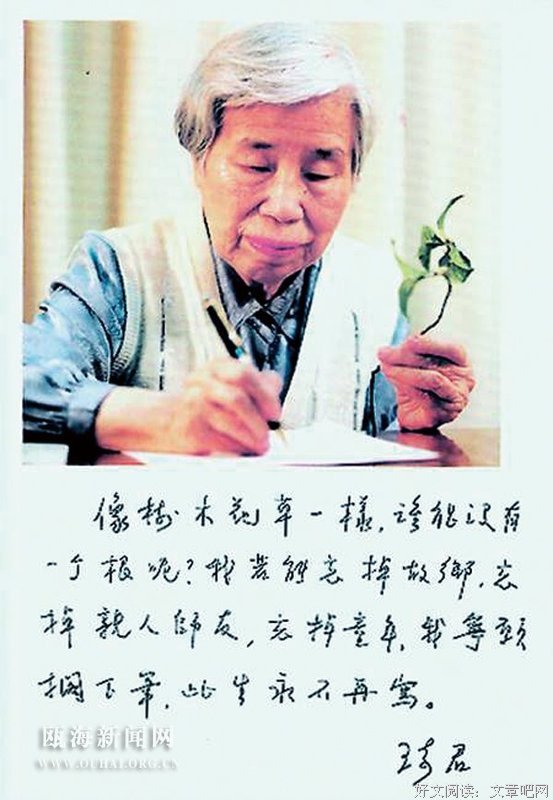 像树木花草一樣，誰能没有
一个根呢？我若能忘掉故鄉，忘
掉親人師友，忘掉童年，我寧願
擱下筆，此生永不再寫。
琦君
瓯海新闻网
WWW.OUHAI.ORG.CN
好文阅读：文章吧网